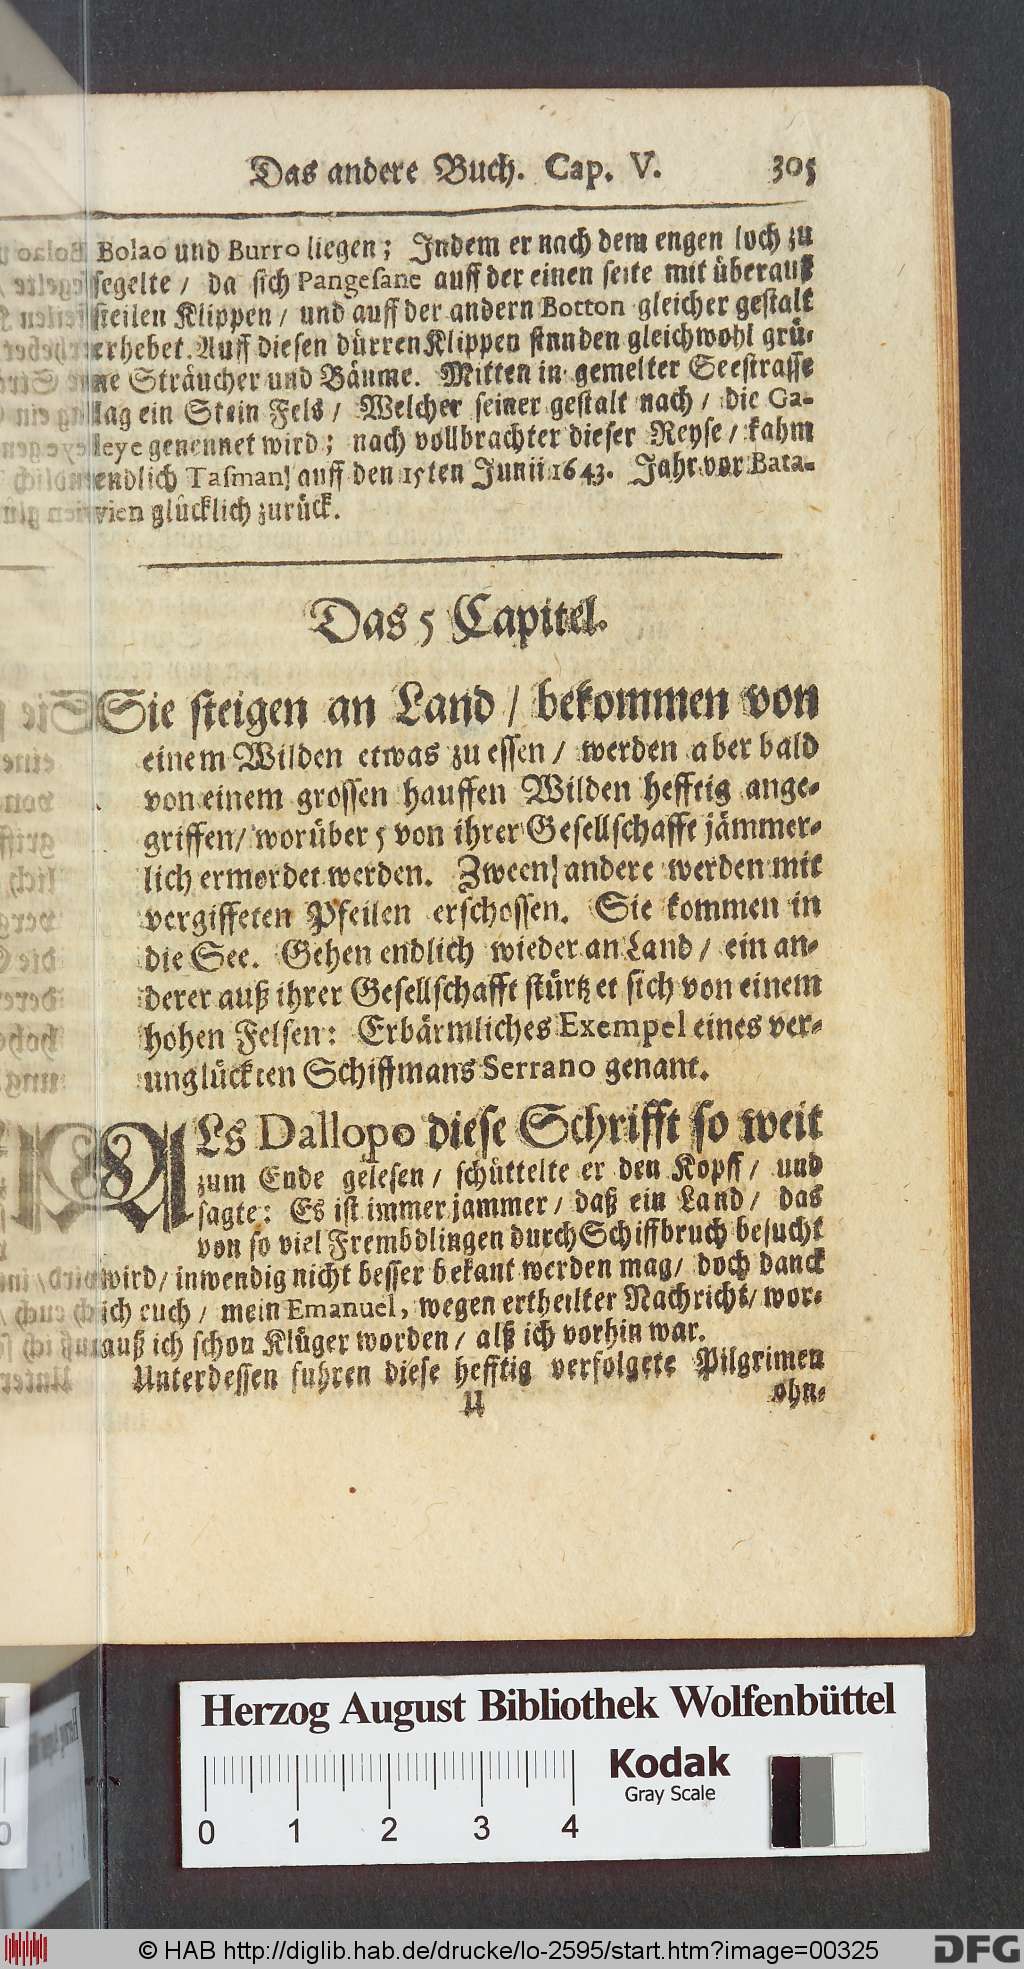 Das andere Buch. Cap. V. 305
Bolao und Burro liegen; Indem er nach dem engen loch zu
segelte / da sich Pangesane auff der einen seite mit überauß
steilen Klippen / und auff der andern Botton gleicher gestalt
erhebet. Auff diesen dürren Klippen stunden gleichwohl grü-
ne Sträucher und Bäume. Mitten in gemelter Seestrasse
lag ein Stein Fels / Welcher seiner gestalt nach / die Ga-
leye genennet wird; nach vollbrachter dieser Reyse / kahm
endlich Tasman! auff den 15ten Junii 1643. Jahr vor Bata-
vien glücklich zurück.
Das 5 Capitel.
Sie steigen an Land / bekommen von
einem Wilden etwas zu essen / werden aber bald
von einem grossen hauffen Wilden hefftig ange-
griffen / worüber 5 von ihrer Gesellschafft jämmer-
lich ermordet werden. Zween! andere werden mit
vergiffeten Pfeilen erschossen. Sie kommen in
die See. Gehen endlich wieder an Land / ein an-
derer auß ihrer Gesellschafft stürtzet sich von einem
hohen Felsen: Erbärmliches Exempel eines ver-
unglückten Schiffmans Serrano genant.
ALs Dallopo diese Schrifft so weit
zum Ende gelesen / schüttelte er den Kopff / und
sagte: Es ist immer jammer / daß ein Land / das
von so viel Frembdlingen durch Schiffbruch besucht
wird / inwendig nicht besser bekant werden mag / doch danck
ich euch / mein Emanuel, wegen ertheilter Nachricht / wor-
auß ich schon Klüger worden / alß ich vorhin war.
Unterdessen fuhren diese hefftig verfolgete Pilgrimen
U ohn-
Herzog August Bibliothek Wolfenbüttel
Kodak
Gray Scale
0 1 2 3 4
© HAB http://diglib.hab.de/drucke/lo-2595/start.htm?image=00325
DFG